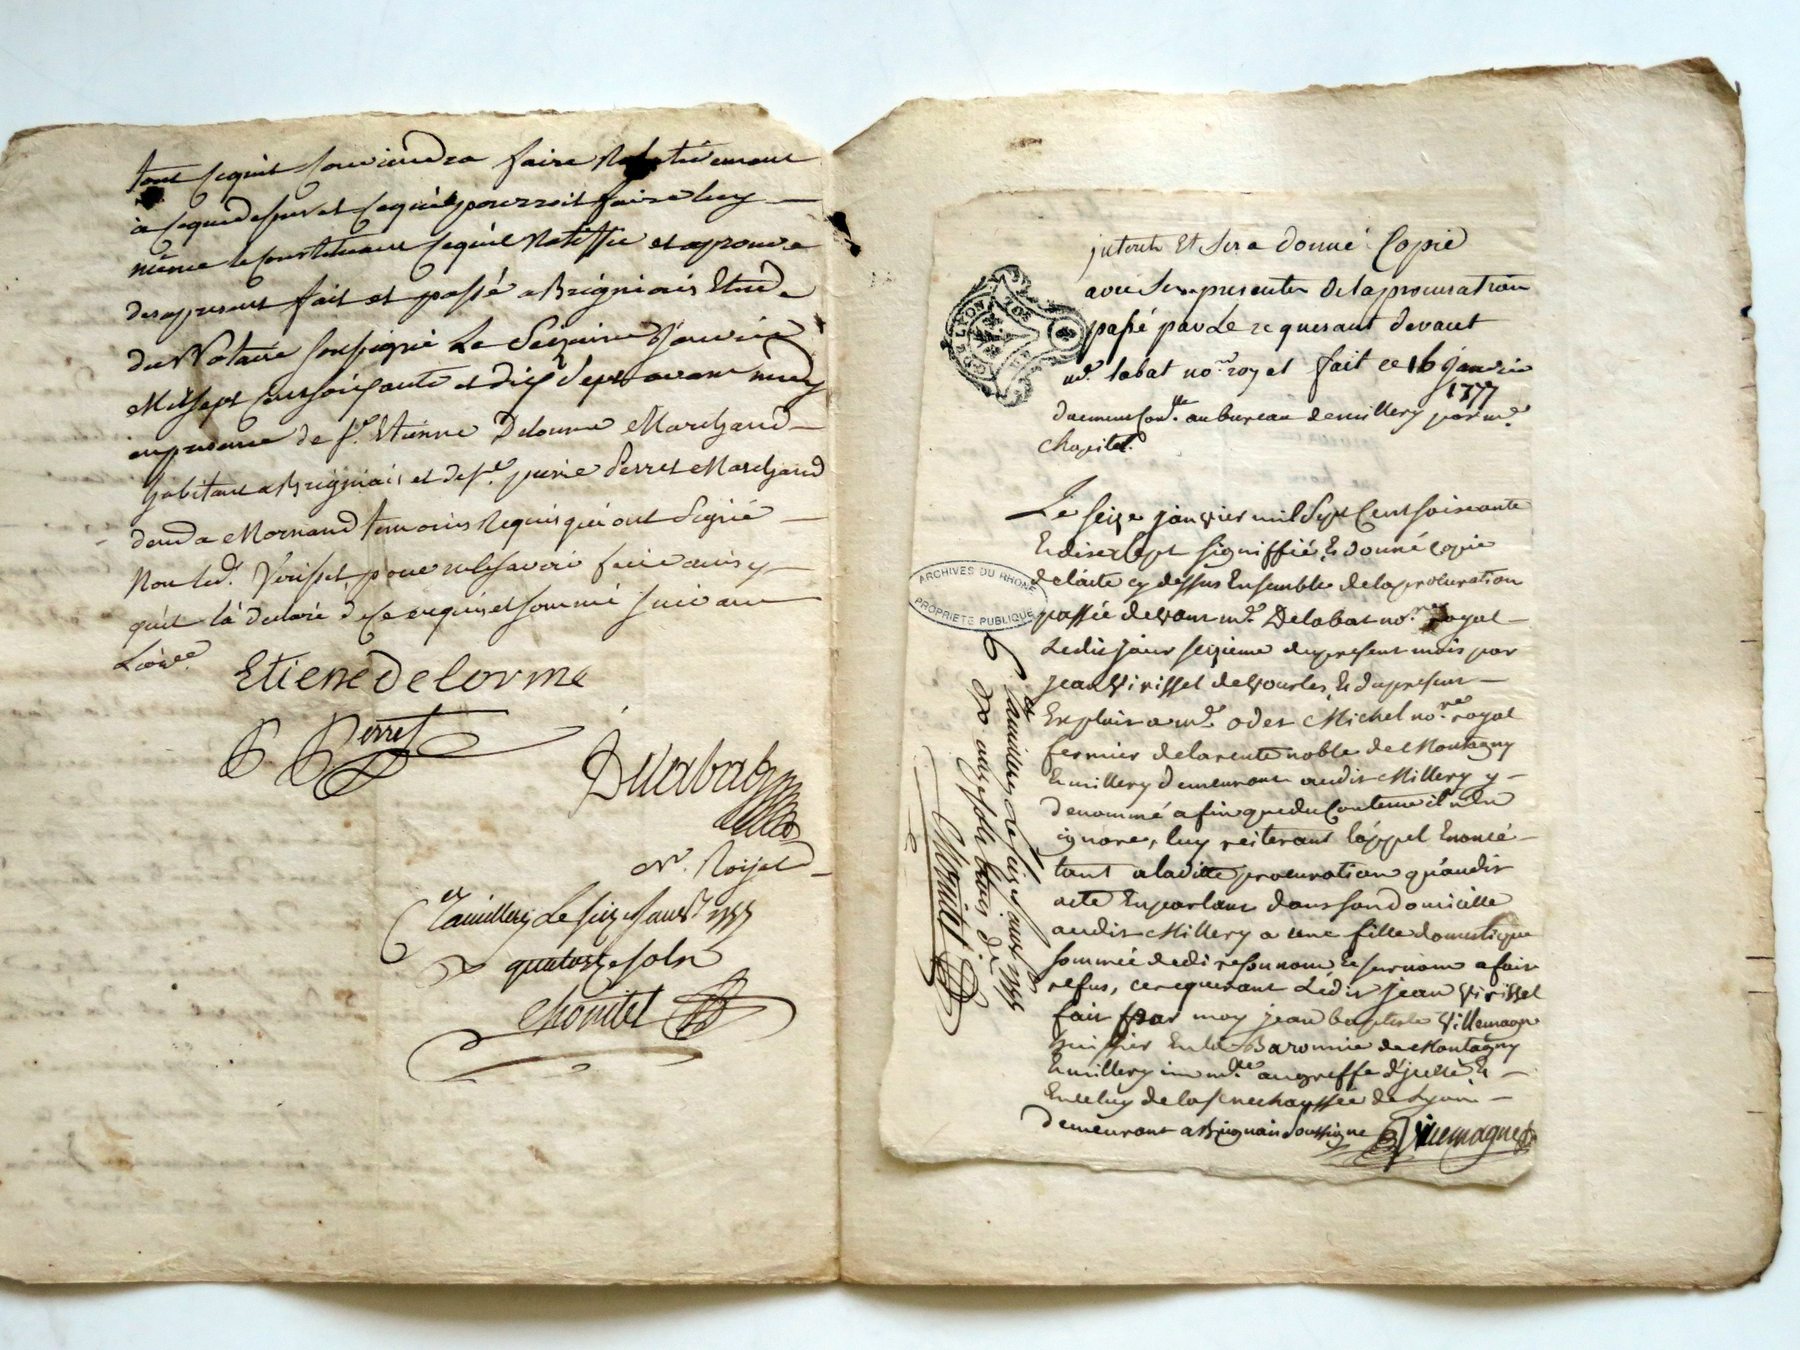 tout ce quil conviendra faire relativement
à ce que dessus et ce quil pourroit faire luy
même le constituant ce quil ratiffie et aprouve
des apresent fait et passé a Brigniais Etude
du Notaire soussigné Le Seizieme Janvier
Mil sept cent soixante et dix sept avant midy
en presence de sr. Etienne Delorme Marchand
habitant a Brigniais et de sr. pierre Perret Marchand
de Mornand temoins requis qui ont signé
Non led. Verisset pour ne le savoir faire ainsy
quil la declaré de ce enquis et sommé suivant
L'ordce.
Etiene Delorme
P Perret
Delabat
Nre. Roijal
Cellé a millery Le seize janvr. 1777
Rx quatorze sols
chapitel
intenté Et sera donné Copie
avec ses presentes de la procuration
passé par Le requerant devant
me. labat nore. royal fait ce 16 janvier
1777
duement conlle. au bureau de millery par me.
chapitel
GEN DE LYON
Le seize janvier mil sept cent soixante
Et dix sept signiffiés, & donné copie
de lacte cy dessus Ensemble de la procuration
passée devant me. Delabat nore. royal
Ledit jour seizieme du present mois par
jean Virisset de Vourles, & du present
Exploit a me. odet Michel nore. royal
fermier de la rente noble de Montagny
& millery demeurant audit Millery y
denommé afin que du contenu il n'en
ignore, luy reiterant lappel Enoncé
tant a laditte procuration quaudit
acte En parlant dans son domicille
audit Millery a une fille domestique
sommée de dire son nom & surnom a fait
refus, ce requerant Lédit jean Virisset
fait par moy jean baptiste Villemagne
huissier En la Baronnie de Montagny
& millery immlé. au greffe d'icelle &
En celuy de la senechaussée de Lyon
demeurant a Brignais soussigné Villemagne
ARCHIVES DU RHONE
PROPRIETE PUBLIQUE
Clé a millery Le seize janvr. 1777
Rx dix sols trois d.
chapitel